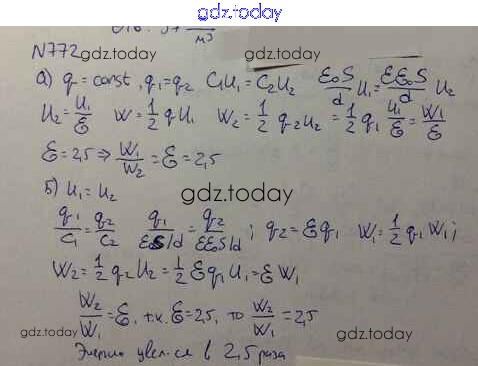 gdz.today
Отв: 37 — м³
N772 gdz.today gdz.today
а) q = const, q₁ = q₂ C₁U₁ = C₂U₂ ε₀S/d U₁ = εε₀S/d U₂
U₂ = U₁/ε W = 1/2 qU₁ W₂ = 1/2 q₂U₂ = 1/2 q₁ U₁/ε = W₁/ε
ε = 2,5 ⇒ W₁/W₂ = ε = 2,5
gdz.today
б) U₁ = U₂
q₁/C₁ = q₂/C₂ q₁/ε₀S/d = q₂/εε₀S/d ; q₂ = εq₁ W₁ = 1/2 q₁ W₁;
W₂ = 1/2 q₂ U₂ = 1/2 εq₁U₁ = εW₁
W₂/W₁ = ε, т.к. ε = 2,5, то W₂/W₁ = 2,5
gdz.today gdz.today
Энергия увел-ся в 2,5 раза
gdz.today